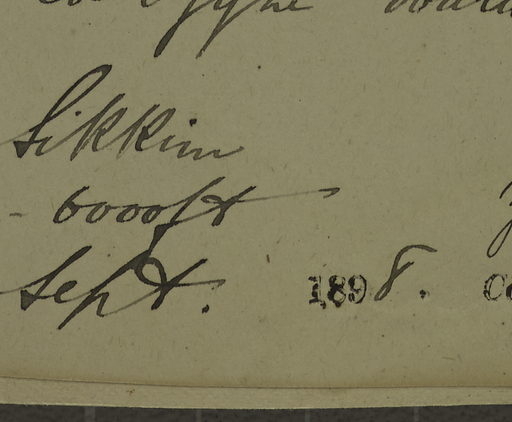 Sikkim
- 6000ft
Sept. 1898.